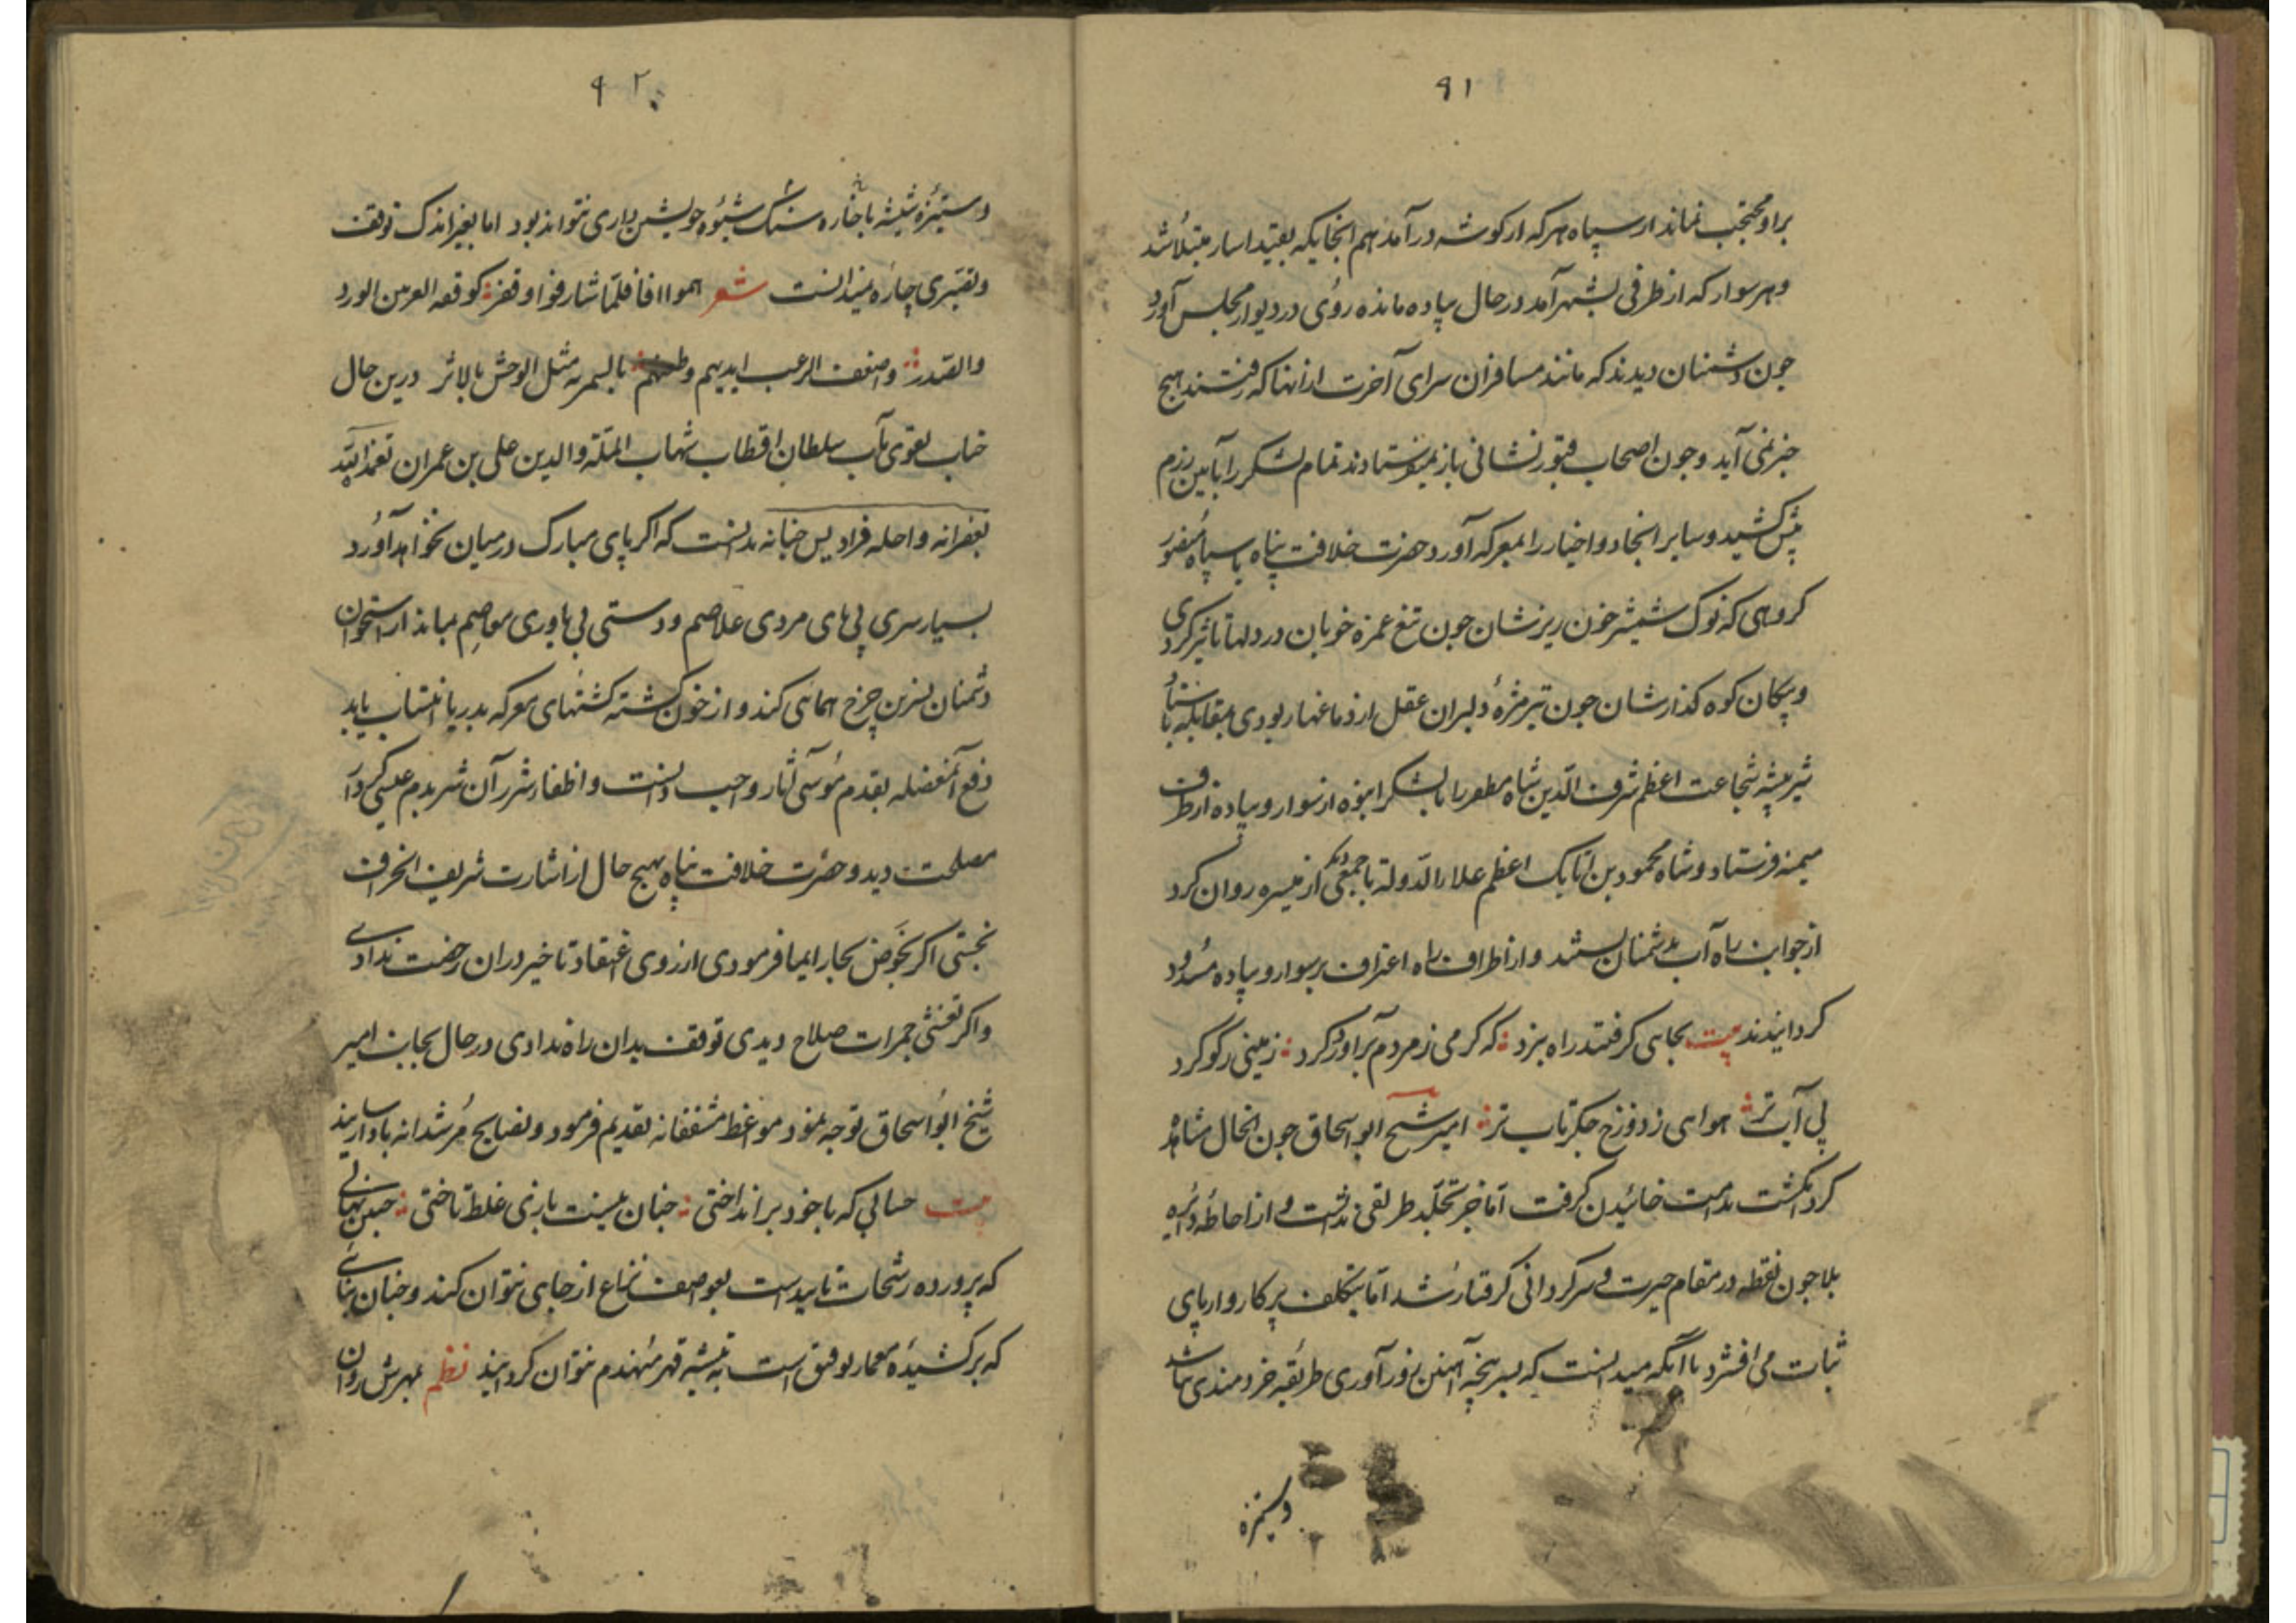 ۹۱
براو محتجب نماند از سپاه هرکه از کوشه درآمد هم انجا بکه بقید اسار مبتلا شد
وهر سوار که از طرفی بشهر آمد در حال پیاده مانده روی در دیوار مجلس آورد
جون دشمنان دیدند که مانند مسافران سرای آخرت ازانها که رفتند هیج
خبر نمی آید وجون اصحاب قبور نشانی باز نمیفرستادند تمام لشکر را بآیین رزم
پیش کشید و سایر انجاد و اخیار را بمعرکه آورد حضرت خلافت پناه با سپاه منصور
کروهی که نوک شمشیر خون ریزشان جون تیغ غمزه خوبان در دلها تاثیر کردی
و پیکان کوه کذارشان جون تیر مژه دلبران عقل از دماغها ربودی بمقابله
شیر بیشه شجاعت اعظم شرف الدین شاه مظفر را با لشکر انبوه از سوار و پیاده از طرف
میمنه فرستاد و شاه محمود بن اتابک اعظم علاء الدوله با جمعی دیکر از میسره روان کرد
از جوانب راه آب بدشمنان بستند و از اطراف راه اعتراف بر سوار و پیاده مسدود
کردانیدند بیت بجایی کرفتند راه نبرد که کرمی ز مردم برآورد کرد زمینی ز کوکرد
بی آب تر هوایی ز دوزخ جکر تاب تر امیر شیخ ابو اسحاق جون انحال مشاهده
کرد انکشت ندامت خائیدن کرفت اما جز تجلد طریقی نداشت و از احاطه دایره
بلا جون نقطه در مقام حیرت و سرکردانی کرفتار شد اما بتکلف پرکار وار پای
ثبات می افشرد با آنکه میدانست که بسر پنجه آهنین زورآوری طریقه خردمندی نباشد
وستیزه
۹۲
وستیزه شیشه با خاره سنک شیوه خویشتن داری نتواند بود اما بغیر اندک توقف
و تصبری چاره نمیدانست شعر هموا افا فلما شارفوا وقفوا کوقفه العیر بین الورد
والصدر واضعف الرعب ایدیهم وطعنهم بالسمریه مثل الوخز بالابر درین حال
جناب تقوی مآب سلطان اقطاب شهاب المله والدین علی بن عمران تغمده الله
بغفرانه واحله فرادیس جنانه بدانست که اکر پای مبارک درمیان نخواهد آورد
بسیار سری بی های مردی غلاصم و دستی بی یاوری معاصم بماند از استخوان
دشمنان نسرین چرخ همائی کند و از خون کشته کشتهای معرکه بدریا انتساب یابد
دفع آن معضله بقدم موسی آثار واجب دانست و اطفاء شرر آن شر بدم عیسی کردار
مصلحت دید و حضرت خلافت پناه بهیج حال از اشارت شریف انحراف
نجستی اکر بخوض بحار ایما فرمودی از روی اعتقاد تاخیر دران رخصت ندادی
واکر تغشی جمرات صلاح دیدی توقف بدان راه ندادی در حال بجانب امیر
شیخ ابو اسحاق توجه نمود مواعظ مشفقانه تقدیم فرمود و نصایح مرشدانه بادا رسانید
بیت حسابی که با خود برانداختی جنان نیست بازی غلط تاختی جنین نهالی
که پرورده رشحات تایید است بعواصف نزاع از جای نتوان کند و جنان بنائی
که برکشیده معمار توفیق است به تیشه قهر منهدم نتوان کردانید نظم بمهرش روان